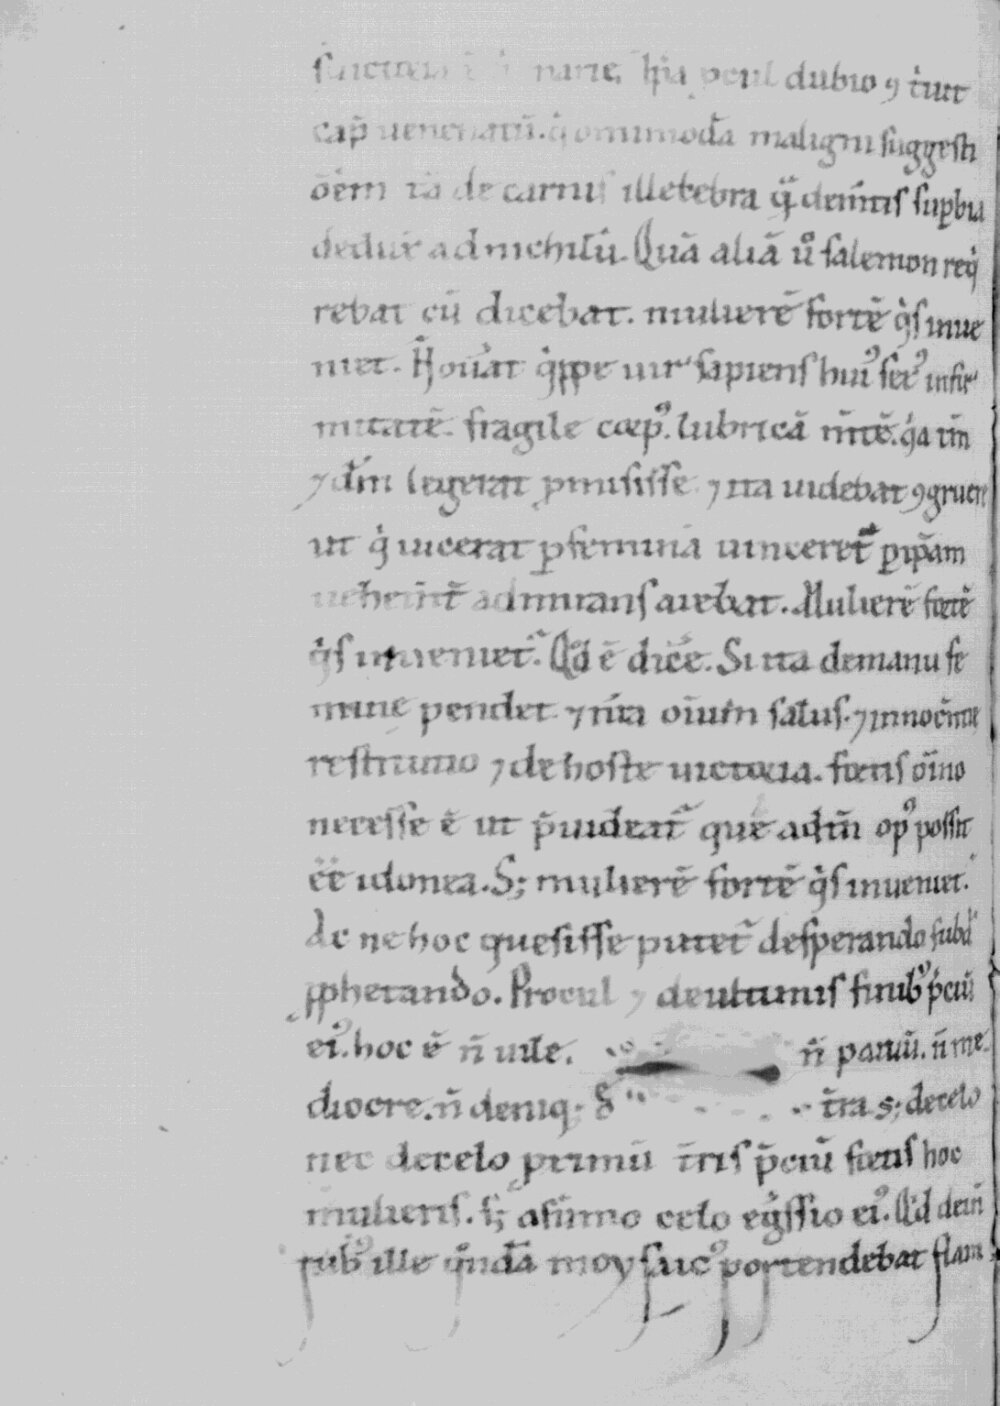 dubio ⁊ t͛uit
cap̄ uenenatū. q͛ omimodā maligni suggesti
ōem tā de carnis illecebra q̄ de mtis supbia
deduxͭ ad nichilū. Quā aliā ů salemon req͛
rebat cū dicebat. mulierē fortē q͛s inue
niet. Nouāt q͛ppe uir sapiens hui᷒ sex᷒ infir
mitatē. fragile corp᷒. lubricā m̄tē. q͛a tn̄
⁊ dm̄ legerat pmisisse ⁊ ita uidebat ꝯgruere
ut q͛ uicerat p femina uinceret᷑ p ip̄am
uehem̄t᷑ admirans aiebat. Mulierē fortē
q͛s inueniet᷑. Qd̄ ē dic̄e. Si ita de manu fe
mine pendet ⁊ nr̄a oīum salus. ⁊ innocētie
restitutio ⁊ de hoste uictoria. fortis oīno
necesse ē ut p̄uideat᷑ que ad tm̄ op᷒ possit
ēē idonea. S; mulierē fortē q͛s inueniet.
Ac ne hoc quesisse putet᷑ desperando subd͛
ꝓphetando. Procul ⁊ de ultimis finib᷒ p̄ciū
ei᷒. hoc ē n̄ uile. n̄ paruū. n̄ me
diocre. n̄ deniq; d t̄ra s; de celo
nec de celo primū t̄ris p̄ciū fortis hoc
mulieris. s; a sūmo celo eg͛ssio ei᷒. Q͛d dein̄
rub᷒ ille q͛ndā moysaic᷒ portendebat flam